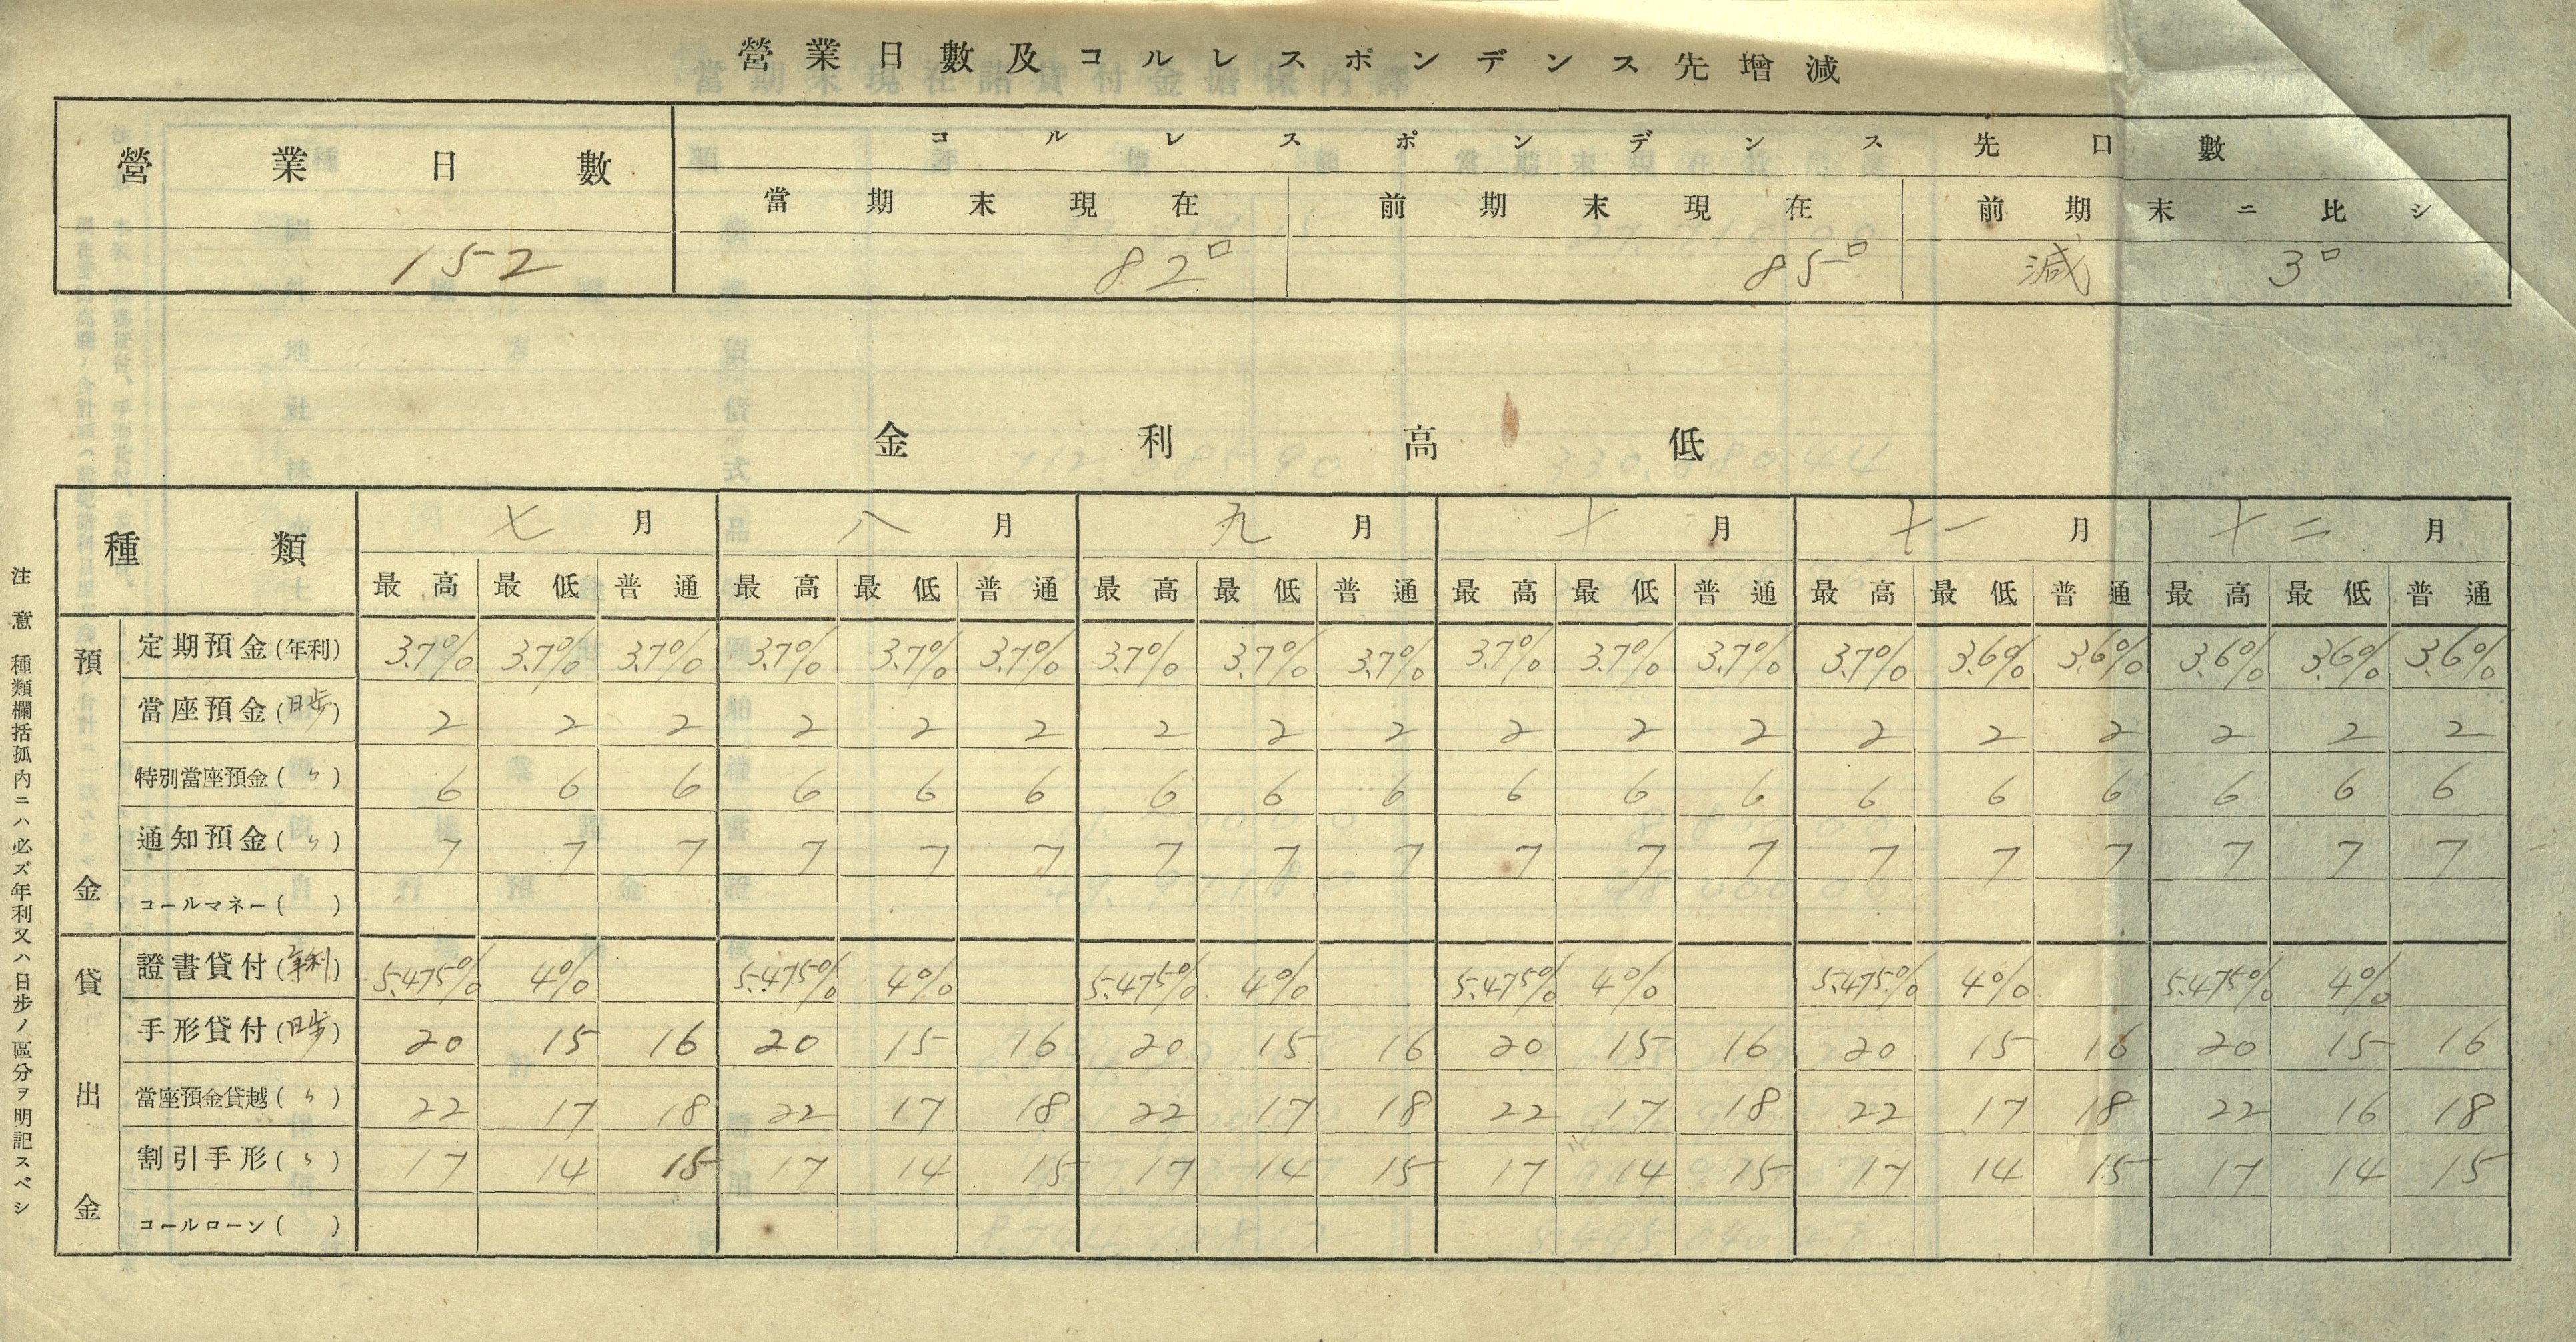 營業日數及コルレスポンデンス先增減
營業日數 コルレスポンデンス先口數
當期末現在 前期末現在 前期末ニ比シ
152 82口 85口 減 3口
金利高低
種類 七月 八月 九月 十月 十一月 十二月
最高 最低 普通 最高 最低 普通 最高 最低 普通 最高 最低 普通 最高 最低 普通 最高 最低 普通
預金
定期預金(年利) 3.7% 3.7% 3.7% 3.7% 3.7% 3.7% 3.7% 3.7% 3.7% 3.7% 3.7% 3.7% 3.7% 3.6% 3.6% 3.6% 3.6% 3.6%
當座預金(日步) 2 2 2 2 2 2 2 2 2 2 2 2 2 2 2 2 2 2
特別當座預金(〃) 6 6 6 6 6 6 6 6 6 6 6 6 6 6 6 6 6 6
通知預金(〃) 7 7 7 7 7 7 7 7 7 7 7 7 7 7 7 7 7 7
コールマネー( )
貸出金
證書貸付(年利) 5.475% 4% 5.475% 4% 5.475% 4% 5.475% 4% 5.475% 4% 5.475% 4%
手形貸付(日步) 20 15 16 20 15 16 20 15 16 20 15 16 20 15 16 20 15 16
當座預金貸越(〃) 22 17 18 22 17 18 22 17 18 22 17 18 22 17 18 22 16 18
割引手形(〃) 17 14 15 17 14 15 17 14 15 17 14 15 17 14 15 17 14 15
コールローン( )
注意 種類欄括孤內ニハ必ズ年利又ハ日步ノ區分ヲ明記スベシ